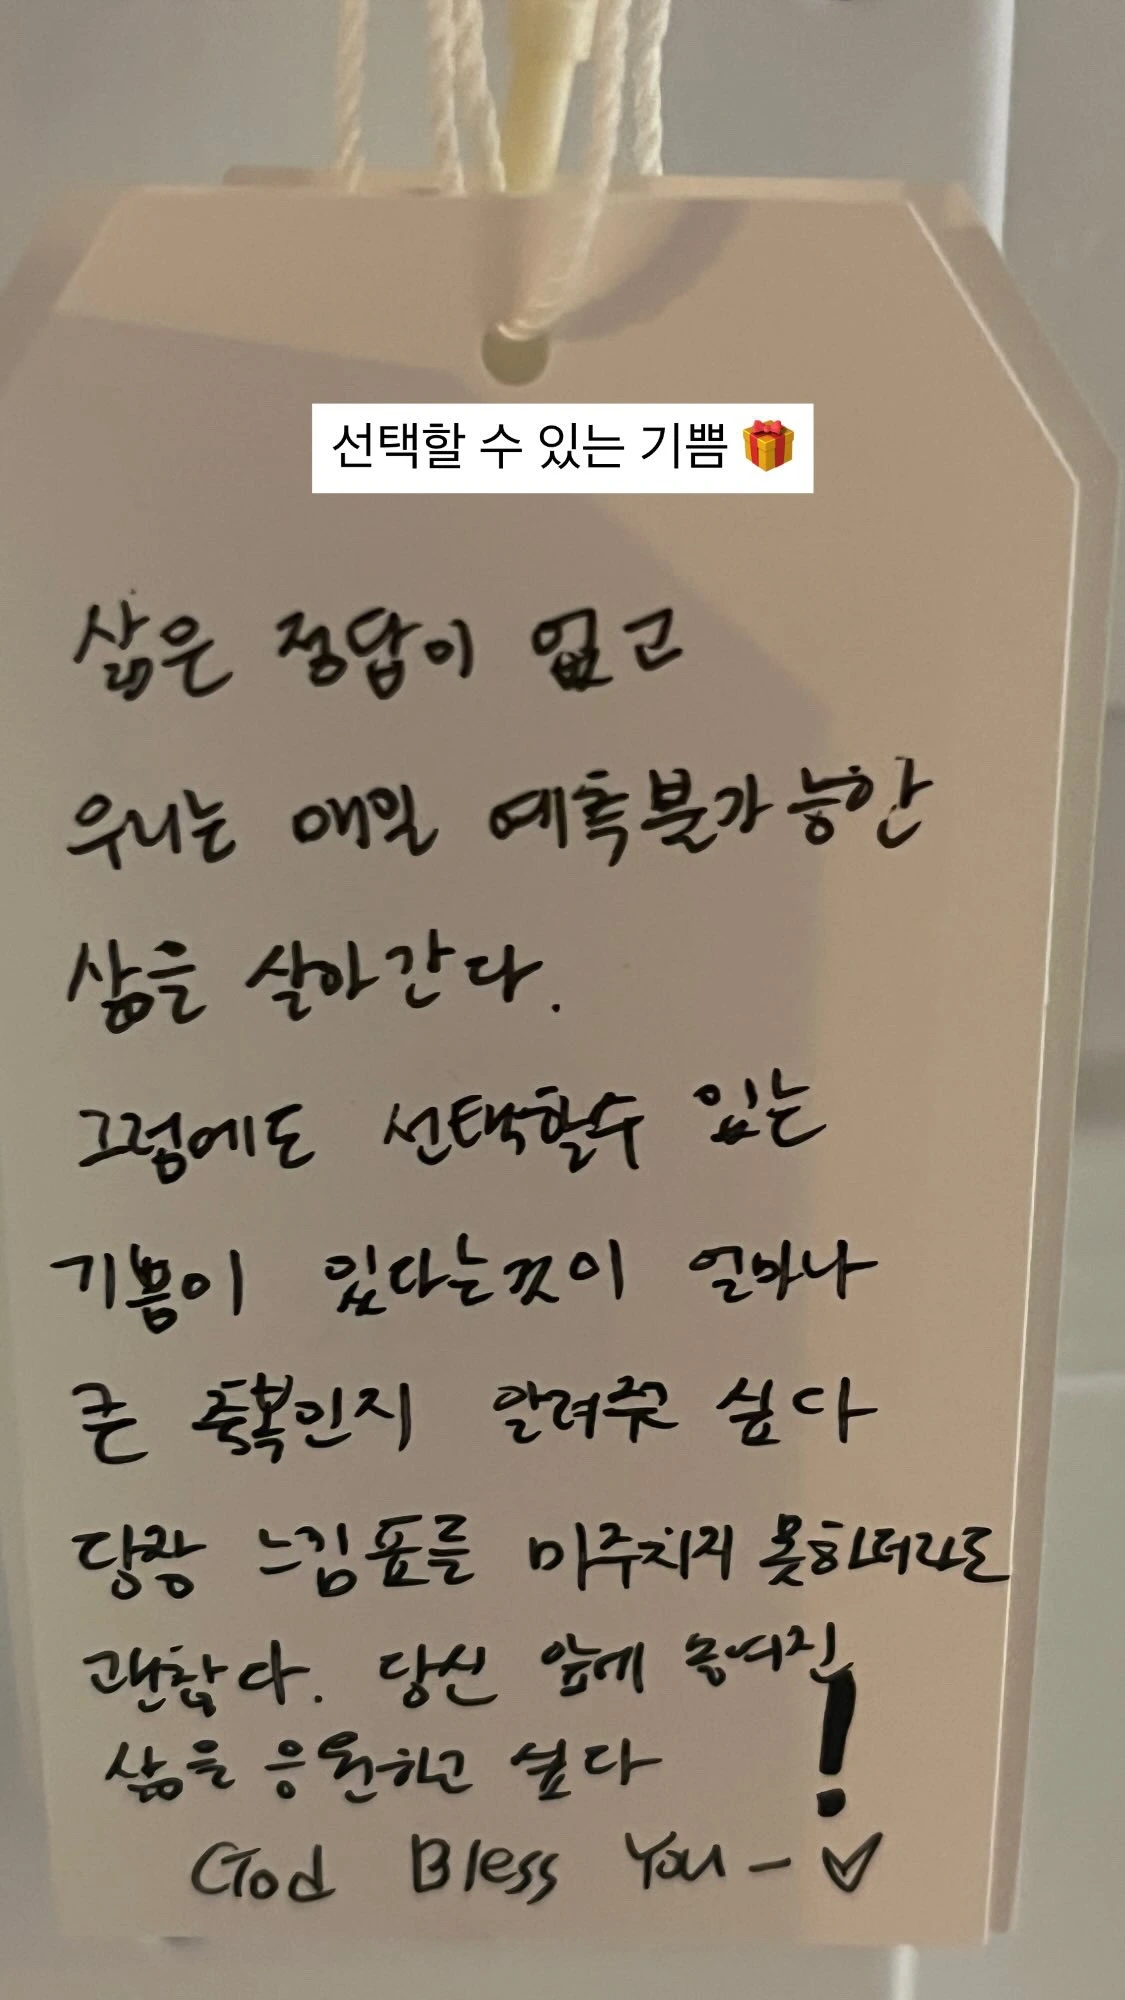 선택할 수 있는 기쁨 🎁
삶은 정답이 없고
우리는 매일 예측불가능한
삶을 살아간다.
그럼에도 선택할수 있는
기쁨이 있다는것이 얼마나
큰 축복인지 알려주고 싶다
당장 느낌표를 마주치지 못하더라도
괜찮다. 당신 앞에 놓여진
삶을 응원하고 싶다!
God Bless You-♡